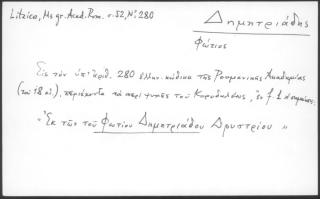 Litzica, Ms gr. Acad. Rom. σ. 52, Nº 280
Δημητριάδης
Φώτιος
Εἰς τὸν ὑπ' ἀριθ. 280 ἑλλην. κώδικα τῆς Ρουμανικῆς Ἀκαδημίας
(τοῦ 18 αἰ.), περιέχοντα τὰ περὶ ψυχῆς τοῦ Κορυδαλέως, ἐν f. 1
"Ἐκ τῶν τοῦ Φωτίου Δημητριάδου Δρυστρίου"